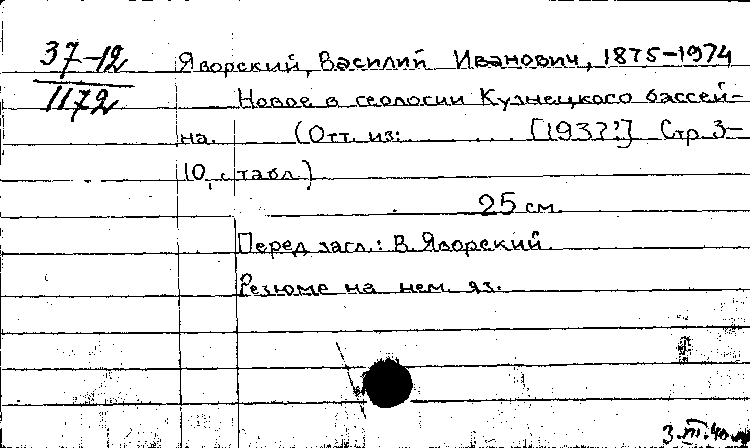 37-12
1172
Яворский, Василий Иванович, 1875-1974
Новое в геологии Кузнецкого бассей-
на. (Отт. из: ... [193?] Стр. 3-
10, с табл.)
25 см.
Перед загл.: В. Яворский.
Резюме на нем. яз.
3.III.40